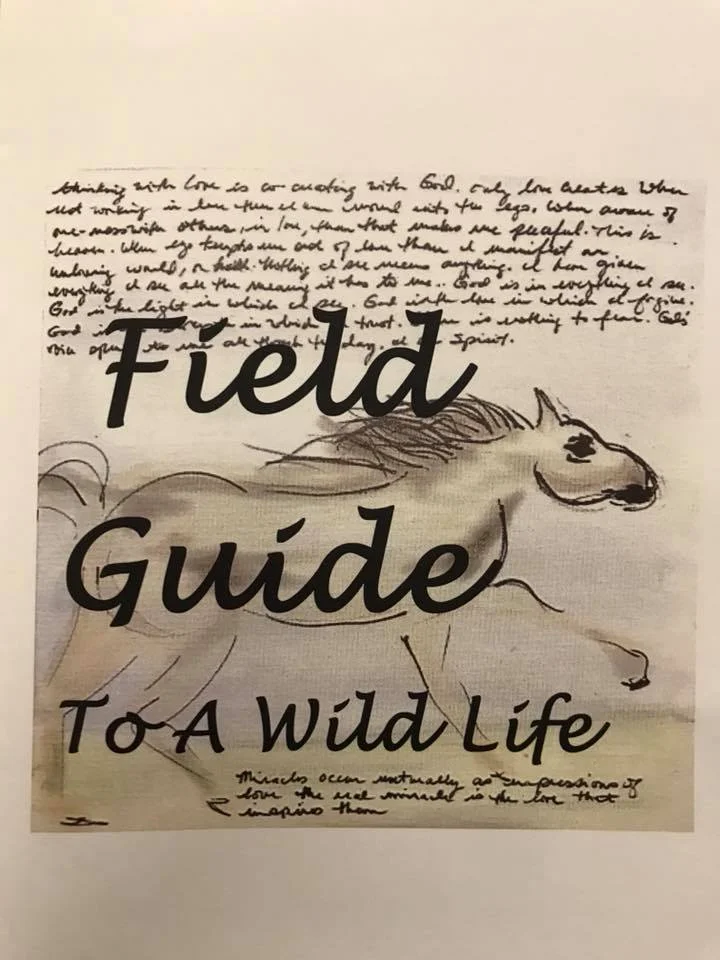 thinking with Love is co-creating with God. only love creates When
not working in love then I am in ego. When aware of
one-ness with others, in love, then that makes me peaceful. This is
heaven. When ego tempts me out of love then I manifest an
unloving world, or hell. Nothing I see means anything. I have given
everything I see all the meaning it has to me.. God is in everything I see.
God is the light in which I see. God is the love in which I forgive.
God is in which I trust. is nothing to fear. God's
voice to me all through the day. Spirit.
Field
Guide
To A Wild Life
Miracles occur naturally as expressions of
love the real miracle is the love that
inspires them